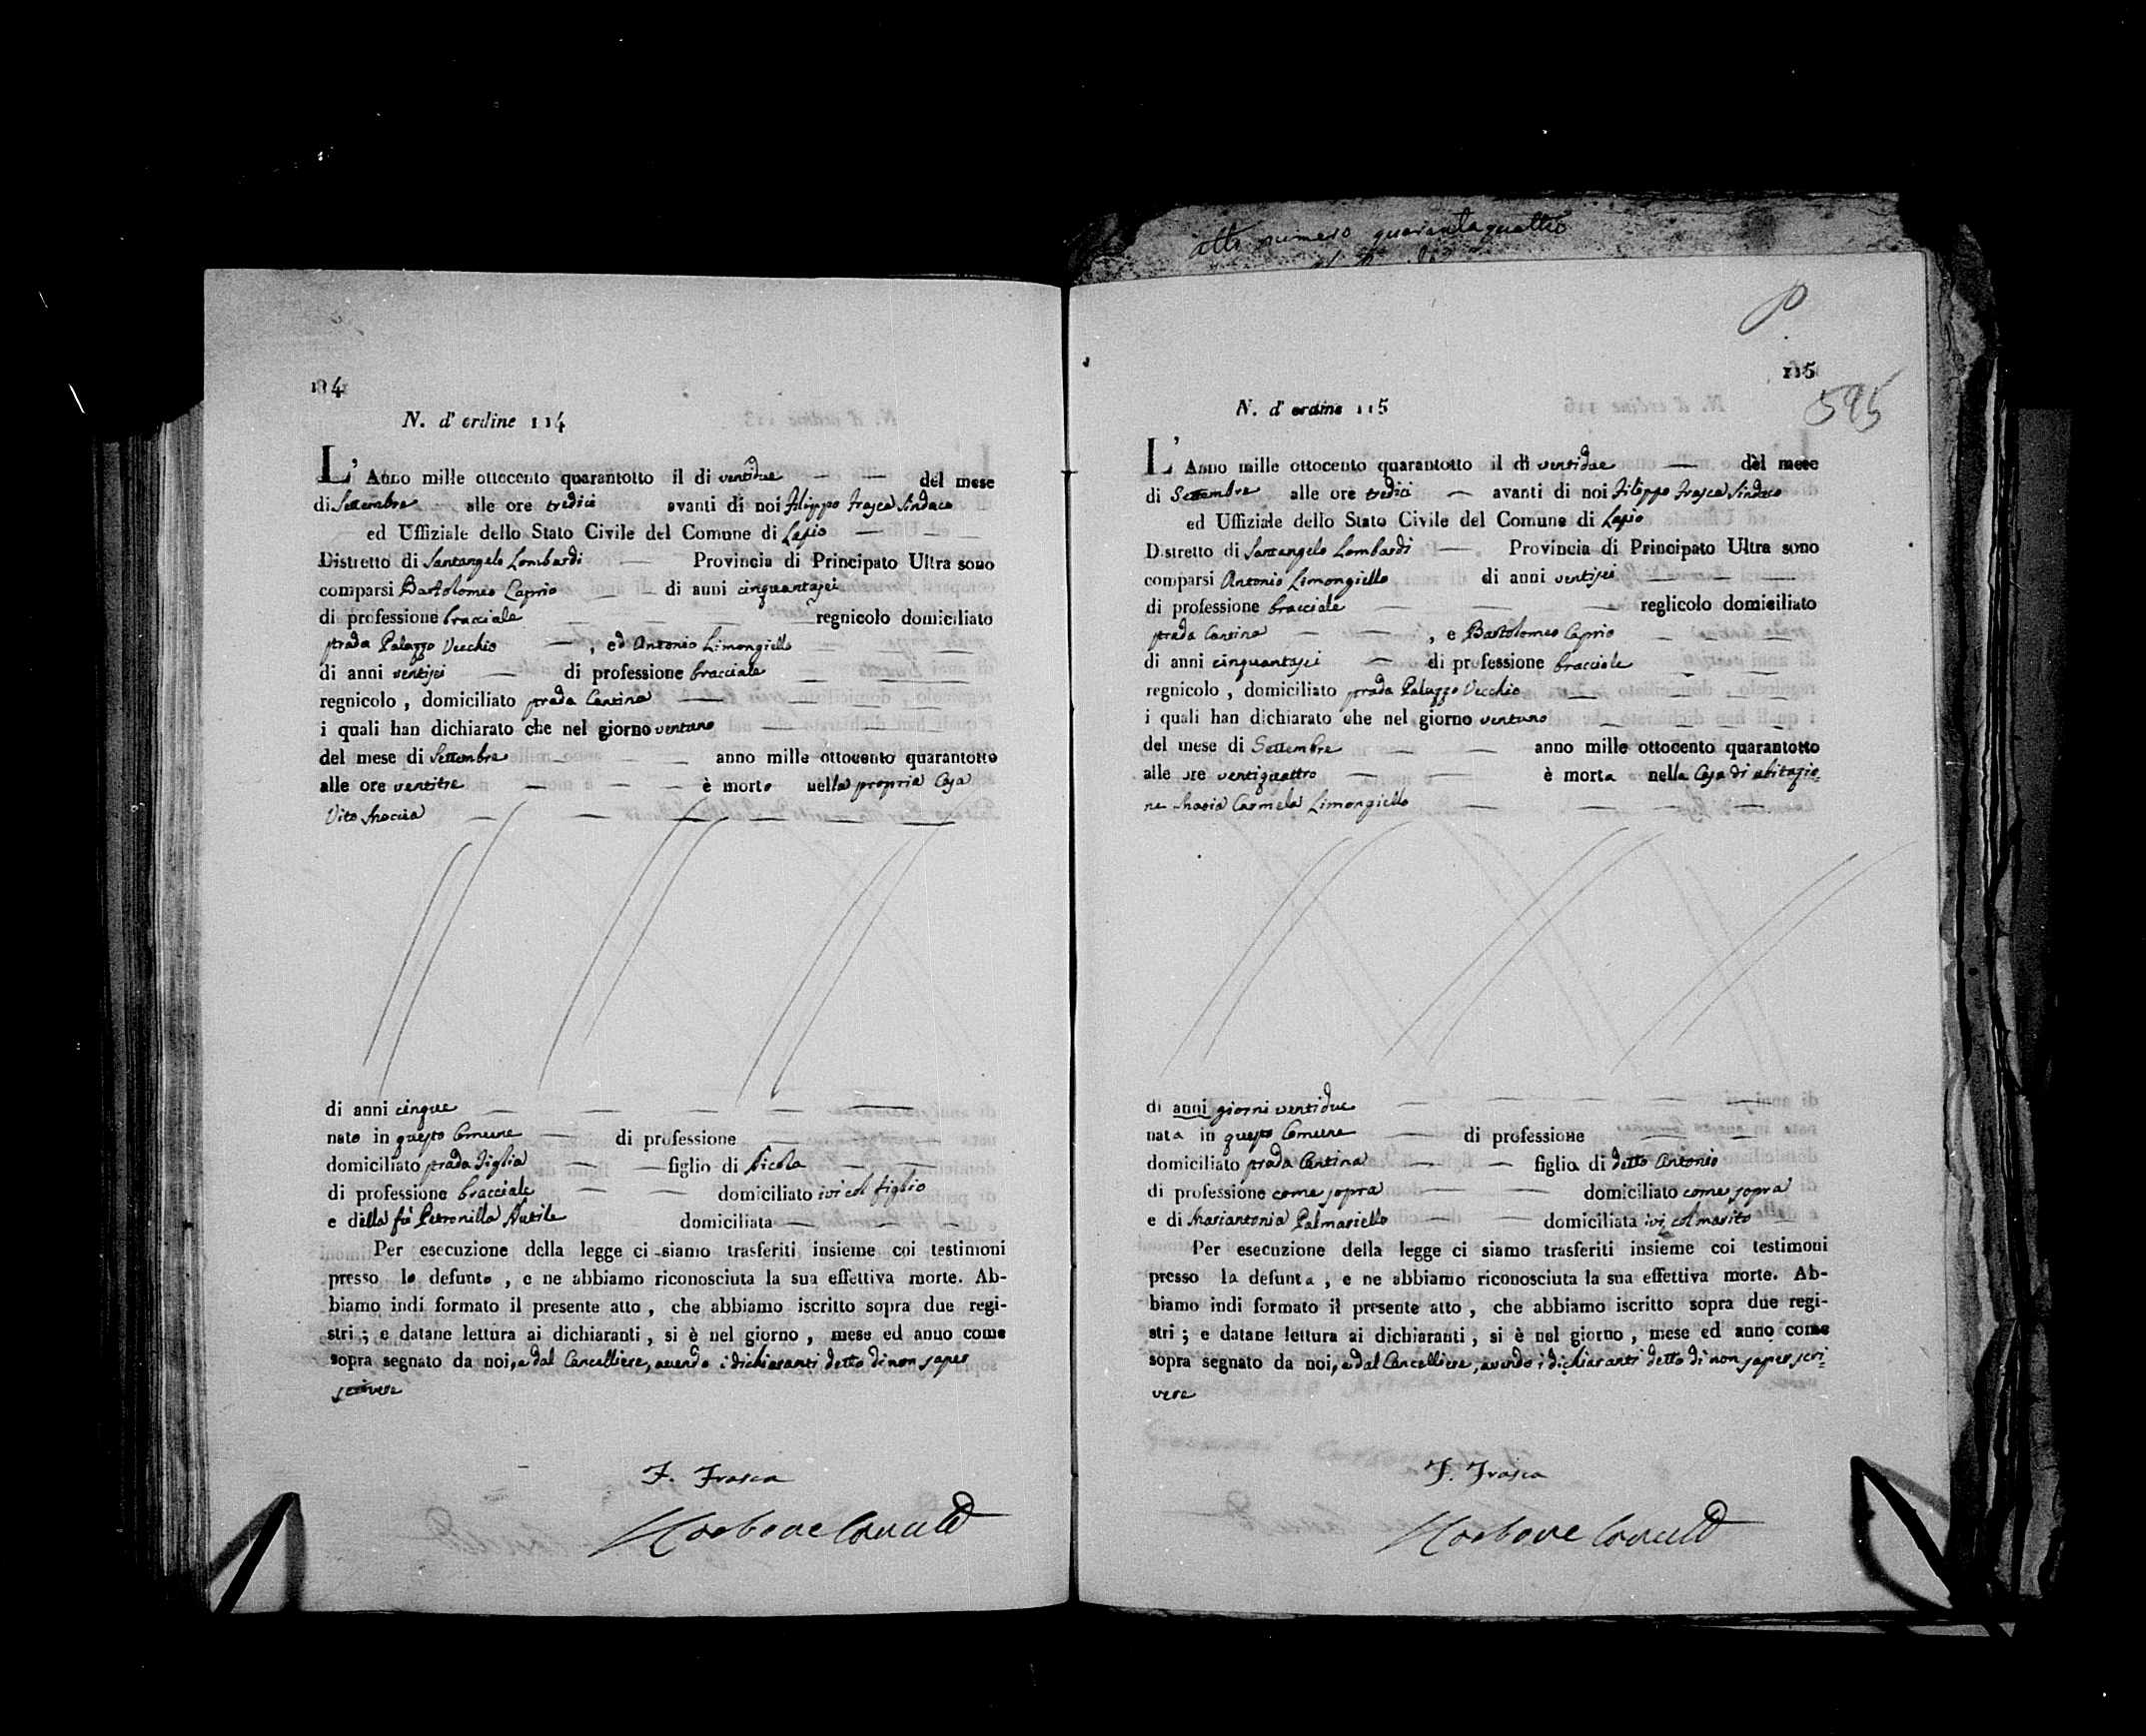 114
N. d' ordine 114
L' Anno mille ottocento quarantotto il di ventidue del mese
di Settembre alle ore tredici avanti di noi Filippo Frasca Sindaco
ed Uffiziale dello Stato Civile del Comune di Lapio
Distretto di Santangelo Lombardi Provincia di Principato Ultra sono
comparsi Bartolomeo Caprio di anni cinquantasei
di professione bracciale regnicolo domiciliato
strada Palazzo Vecchio , ed Antonio Limongiello
di anni ventisei di professione bracciale
regnicolo , domiciliato strada Cantina
i quali han dichiarato che nel giorno ventuno
del mese di Settembre anno mille ottocento quarantotto
alle ore ventitre è morto nella propria Casa
Vito
di anni cinque
nato in questo Comune di professione
domiciliato strada figlio di Nicola
di professione bracciale domiciliato ivi col figlio
e della fù Petronilla Nutile domiciliata
Per esecuzione della legge ci siamo trasferiti insieme coi testimoni
presso lo defunto , e ne abbiamo riconosciuta la sua effettiva morte. Ab-
biamo indi formato il presente atto , che abbiamo iscritto sopra due regi-
stri ; e datane lettura ai dichiaranti , si è nel giorno , mese ed anno come
sopra segnato da noi, e dal Cancelliere, avendo i dichiaranti detto di non saper
scrivere
F. Frasca
atto numero quarantaquattro
115
595
N. d' ordine 115
L' Anno mille ottocento quarantotto il di ventidue del mese
di Settembre alle ore tredici avanti di noi Filippo Frasca Sindaco
ed Uffiziale dello Stato Civile del Comune di Lapio
Distretto di Santangelo Lombardi Provincia di Principato Ultra sono
comparsi Antonio Limongiello di anni ventisei
di professione bracciale reglicolo domiciliato
strada Cantina , e Bartolomeo Caprio
di anni cinquantasei di professione bracciale
regnicolo , domiciliato strada Palazzo Vecchio
i quali han dichiarato che nel giorno ventuno
del mese di Settembre anno mille ottocento quarantotto
alle ore ventiquattro è morta nella Casa di abitazio=
ne Maria Carmela Limongiello
di anni giorni ventidue
nata in questo Comune di professione
domiciliato strada Cantina figlia di detto Antonio
di professione come sopra domiciliato come sopra
e di Mariantonia Palmariello domiciliata ivi col marito
Per esecuzione della legge ci siamo trasferiti insieme coi testimoni
presso la defunta , e ne abbiamo riconosciuta la sua effettiva morte. Ab-
biamo indi formato il presente atto , che abbiamo iscritto sopra due regi-
stri ; e datane lettura ai dichiaranti , si è nel giorno , mese ed anno come
sopra segnato da noi, e dal Cancelliere, avendo i dichiaranti detto di non saper scri=
vere
F. Frasca